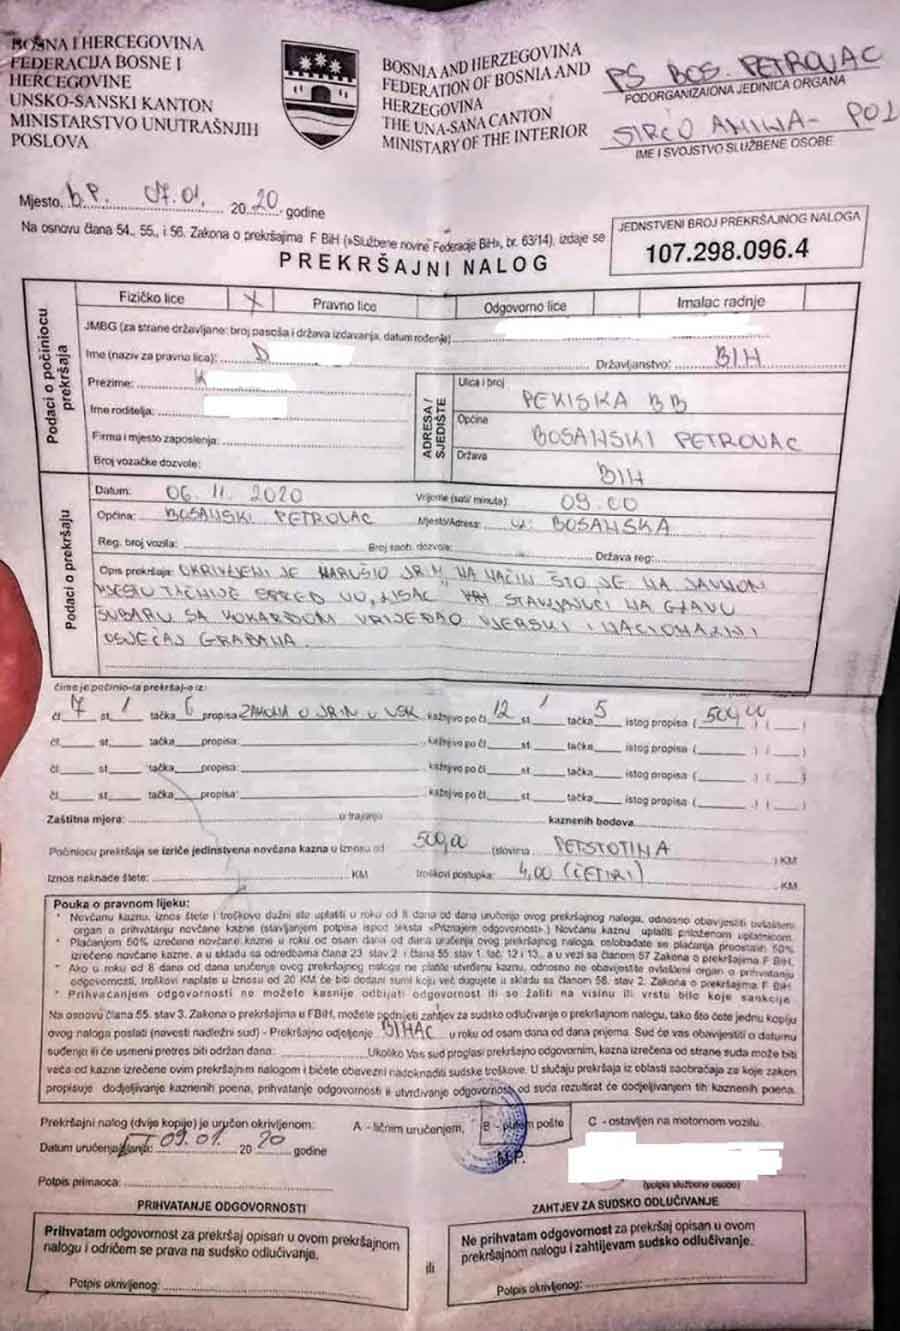 BOSNA I HERCEGOVINA
FEDERACIJA BOSNE I
HERCEGOVINE
UNSKO-SANSKI KANTON
MINISTARSTVO UNUTRAŠNJIH
POSLOVA
BOSNIA AND HERZEGOVINA
FEDERATION OF BOSNIA AND
HERZEGOVINA
THE UNA-SANA CANTON
MINISTRY OF THE INTERIOR
PS BOS. PETROVAC
PODORGANIZAIONA JEDINICA ORGANA
IME I SVOJSTVO SLUŽBENE OSOBE
Mjesto, b.P. 07.01. 2020 godine
Na osnovu člana 54., 55., i 56. Zakona o prekršajima F BiH («Službene novine Federacije BiH», br. 63/14), izdaje se
JEDNSTVENI BROJ PREKRŠAJNOG NALOGA
107.298.096.4
PREKRŠAJNI NALOG
Podaci o počiniocu prekršaja
Fizičko lice X Pravno lice Odgovorno lice Imalac radnje
JMBG (za strane državljane: broj pasoša i država izdavanja, datum rođenje)
Ime (naziv za pravna lica): D Državljanstvo: BIH
Prezime: K
Ime roditelja:
Firma i mjesto zaposlenja:
Broj vozačke dozvole:
ADRESA / SJEDIŠTE
Ulica i broj
PEKISKA BB
Općina
BOSANSKI PETROVAC
Država
BIH
Podaci o prekršaju
Datum: 06. 11. 2020 Vrijeme (sati/ minuta): 09.00
Općina: BOSANSKI PETROVAC Mjesto/Adresa: ul. BOSANSKA
Reg. broj vozila: Broj saob. dozvole: Država reg:
Opis prekršaja: OKRIVLJENI JE NARUŠIO JRM, NA NAČIN ŠTO JE NA JAVNOM
MJESTU TAČNIJE ISPRED STAVLJAJUĆI NA GLAVU
ŠUBARU SA KOKARDOM VRIJEĐAO VJERSKI I NACIONALNI
OSJEĆAJ GRAĐANA.
čime je počinio-la prekršaj-e iz:
čl. 7 st. 1 tačka 6 propisa ZAKONA O JRIM U USK kažnjivo po čl. 12 st. 1 tačka 5 istog propisa ( 500,00 ) ( )
čl. st. tačka propisa: kažnjivo po čl. st. tačka istog propisa ( ) ( )
čl. st. tačka propisa: kažnjivo po čl. st. tačka istog propisa ( ) ( )
čl. st. tačka propisa: kažnjivo po čl. st. tačka istog propisa ( ) ( )
Zaštitna mjera: u trajanju kaznenih bodova
Počiniocu prekršaja se izriče jedinstvena novčana kazna u iznosu od 500,00 (slovima PETSTOTINA ) KM
Iznos naknade štete: KM troškovi postupka: 4,00 (ČETIRI) KM.
Pouka o pravnom lijeku:
* Novčanu kaznu, iznos štete i troškove dužni ste uplatiti u roku od 8 dana od dana uručenja ovog prekršajnog naloga, odnosno obavijestiti ovlašteni
organ o prihvatanju novčane kazne (stavljanjem potpisa ispod teksta «Priznajem odgovornost».) Novčanu kaznu uplatiti priloženom uplatnicom.
* Plaćanjem 50% izrečene novčane kazne u roku od osam dana od dana uručenja ovog prekršajnog naloga, oslobađate se plaćanja preostalih 50%
izrečene novčane kazne, a u skladu sa odredbama člana 23 stav 2. i člana 55. stav 1. tač. 12 i 13., a u vezi sa članom 57 Zakona o prekršajima F BiH.
* Ako u roku od 8 dana od dana uručenje ovog prekršajnog naloga ne platite utvrđenu kaznu, odnosno ne obavijestite ovlašteni organ o prihvatanju
odgovornosti, troškovi naplate u iznosu od 20 KM će biti dodani sumi koju već dugujete u skladu sa članom 58. stav 2. Zakona o prekršajima F BiH.
* Prihvaćanjem odgovornosti ne možete kasnije odbijati odgovornost ili se žaliti na visinu ili vrstu bilo koje sankcije
Na osnovu člana 55. stav 3. Zakona o prekršajima u FBiH, možete podnijeti zahtjev za sudsko odlučivanje o prekršajnom nalogu, tako što ćete jednu kopiju
ovog naloga poslati (navesti nadležni sud) - Prekršajno odjeljenje BIHAĆ u roku od osam dana od dana prijema. Sud će vas obavijestiti o datumu
suđenja ili će usmeni pretres biti održan dana: Ukoliko Vas sud proglasi prekršajno odgovornim, kazna izrečena od strane suda može biti
veća od kazne izrečene ovim prekršajnim nalogom i bićete obavezni nadoknaditi sudske troškove. U slučaju prekršaja iz oblasti saobraćaja za koje zakon
propisuje dodjeljivanje kaznenih poena, prihvatanje odgovornosti ili utvrđivanje odgovornosti od suda rezultirat će dodjeljivanjem tih kaznenih poena.
Prekršajni nalog (dvije kopije) je uručen okrivljenom: A - ličnim uručenjem, B - putem pošte C - ostavljen na motornom vozilu.
Datum uručenja/slanja: 09.01. 2020 godine
M.P.
Potpis primaoca:
(potpis službene osobe)
PRIHVATANJE ODGOVORNOSTI
Prihvatam odgovornost za prekršaj opisan u ovom prekršajnom
nalogu i odričem se prava na sudsko odlučivanje.
Potpis okrivljenog:
ili
ZAHTJEV ZA SUDSKO ODLUČIVANJE
Ne prihvatam odgovornost za prekršaj opisan u ovom
prekršajnom nalogu i zahtijevam sudsko odlučivanje.
Potpis okrivljenog: